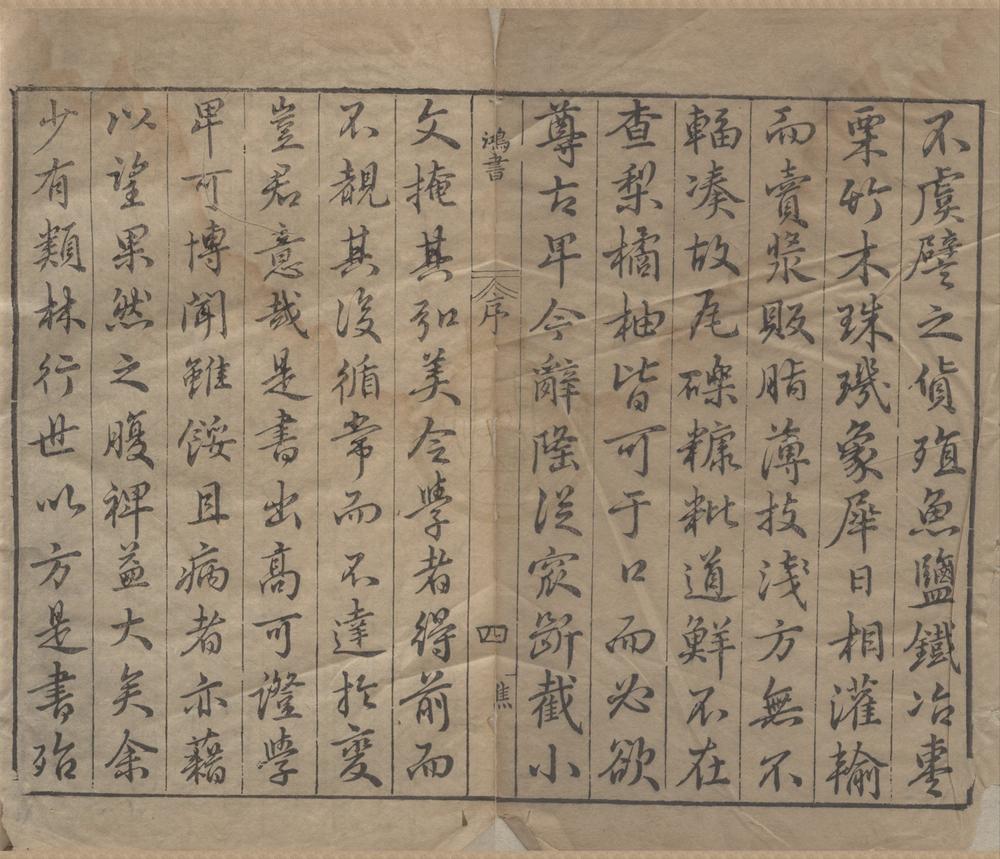 不虞譬之貨殖魚鹽鐵冶棗
栗竹木珠璣象犀日相灌輸
而賣漿販脂薄技淺方無不
輻湊故瓦礫糠粃道鮮不在
查梨橘柚皆可于口而必欲
尊古卑今辭隆從窾斷截小
鴻書
序
四
焦
文掩其弘美令學者得前而
不覩其後循常而不達於變
豈君意哉是書出高可證學
卑可博聞雖餒且病者亦藉
以望果然之腹裨益大矣余
少有類林行世以方是書殆